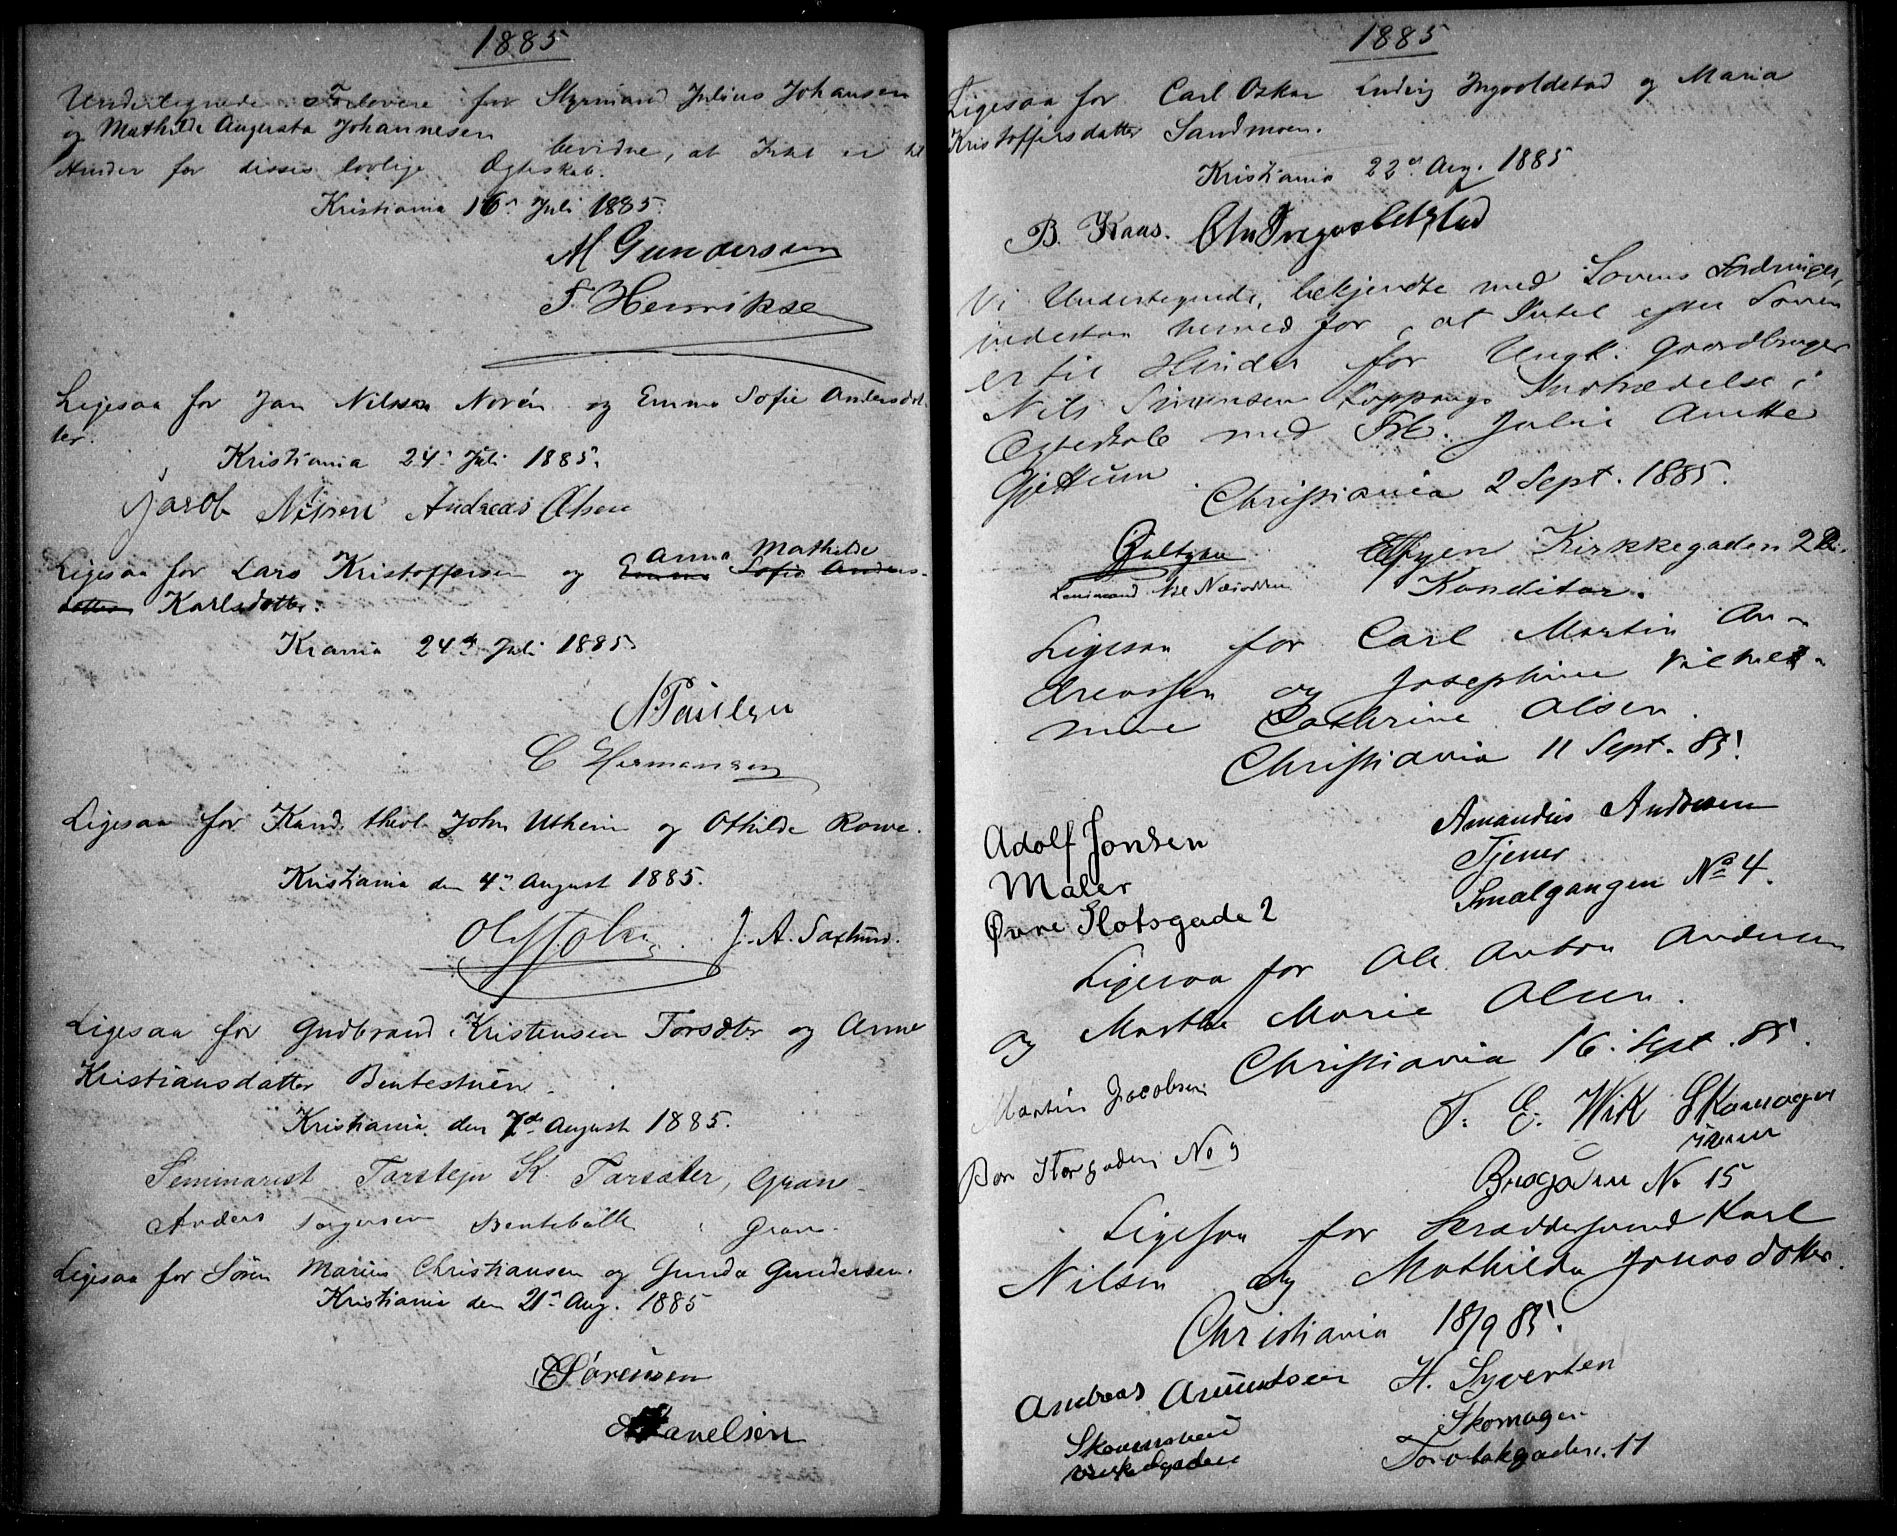 1885
Undertegnede Forlovere for Styrmand Julius Johansen
og Mathilde Augusta Johannesen
bevidne, at Intet er til
Hinder for disses lovlige Ægteskab.
Kristiania 16. Juli 1885.
M Gundersen
F. Henriksen
Ligesaa for Jan Nilssen Norén og Emma Sofie Andersdat-
ter.
Kristiania 24. Juli 1885.
Jacob Nilsen Andreas Olsen
Anna Mathilde
Ligesaa for Lars Kristoffersen og Emma Sofie Anders-
datter Karlsdatter.
Krania 24de Juli 1885
N Paulsen
C Hermansen
Ligesaa for Kand. theol. John Utheim og Othilde Rowe.
Kristiania den 4. August 1885.
J. A. Saxlund.
Ligesaa for Gudbrand Kristensen Torsæter og Anne
Kristiansdatter Bentestuen.
Kristiania den 7de August 1885.
Seminarist Torstejn K. Torsæter, Gran
Anders Torgersen Gran.
Ligesaa for Søren Marius Christiansen og Gunda Gundersen.
Kristiania den 21. Aug. 1885
Sørensen
1885
Ligesaa for Carl Oskar Ludvig Ingvoldstad og Maria
Kristoffersdatter Sandmoen.
Kristiania 22d Aug. 1885
B. Kaas. Chr Ingvoldstad
Vi Undertegnede, bekjendte med Lovens Fordringer,
indestaa herved for, at Intet efter Loven
er til Hinder for Ungk. Gaardbruger
Nils Simensen Koppangs Indtrædelse i
Ægteskab med Frk. Julie Anette
Gjettum.
Christiania 2 Sept. 1885.
Kirkkegaden 22.
Konditor.
Ligesaa for Carl Martin An-
dreassen og Josephine Vilhel-
mine Cathrine Olsen.
Christiania 11 Sept. 85.
Adolf Jonsen
Maler
Øvre Slotsgade 2
Amandus Andresen
Tjener
Smalgangen No 4.
Ligesaa for Ole Anton Andersen
og Marthe Marie Olsen.
Christiania 16. Sept. 85.
Martin Jacobsen
Boe Storgaden No 9
T. E. Wik Skomager
No 15
Ligesaa for Skræddersvend Karl
Nilsen og Mathilda Jonasdotter.
Christiania 18/9 85.
Andreas Amundsen
H. Syvertsen
Skomager
11